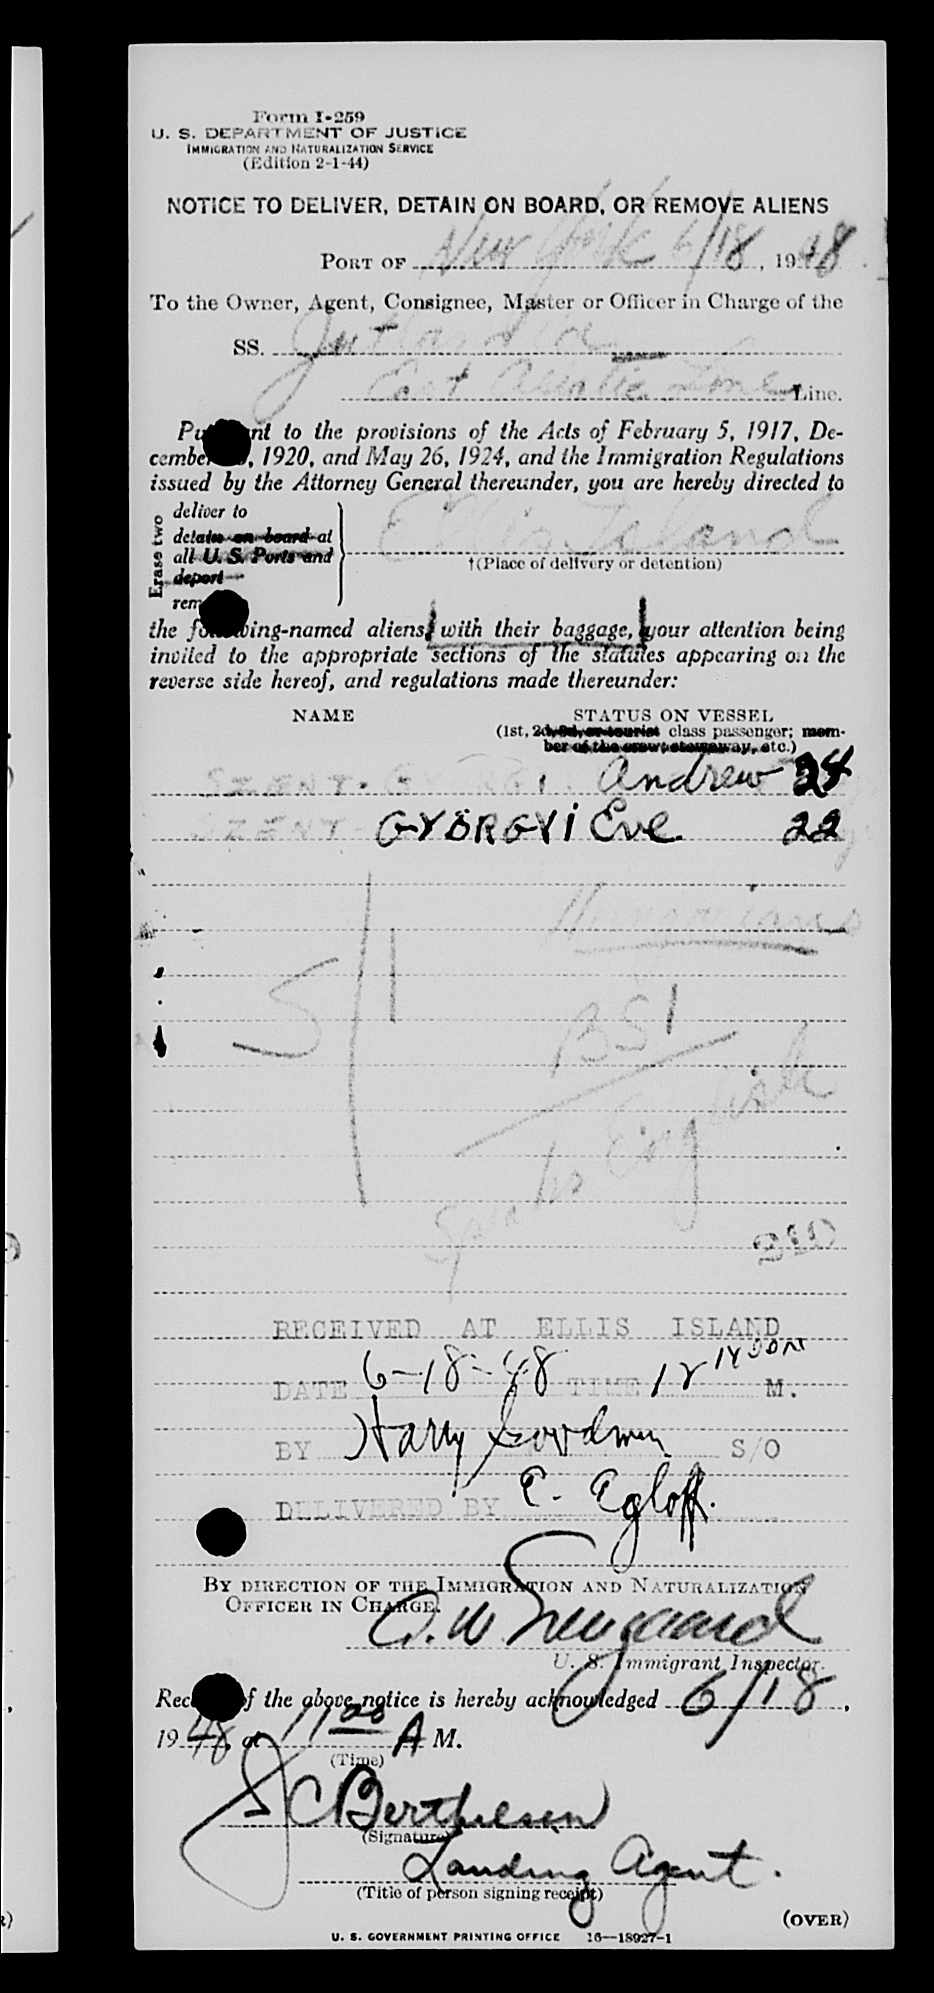 Form I-259
U. S. DEPARTMENT OF JUSTICE
IMMIGRATION AND NATURALIZATION SERVICE
(Edition 2-1-44)
NOTICE TO DELIVER, DETAIN ON BOARD, OR REMOVE ALIENS
PORT OF New York 6/18, 1948
To the Owner, Agent, Consignee, Master or Officer in Charge of the
SS. Jutlandia
East Asiatic Line Line.
Pu nt to the provisions of the Acts of February 5, 1917, De-
cember , 1920, and May 26, 1924, and the Immigration Regulations
issued by the Attorney General thereunder, you are hereby directed to
Erase two
deliver to
detain on board at
all U. S. Ports and
deport
rem
Ellis Island
†(Place of delivery or detention)
the fo wing-named aliens, with their baggage, your attention being
invited to the appropriate sections of the statutes appearing on the
reverse side hereof, and regulations made thereunder:
NAME STATUS ON VESSEL
(1st, 2d, 3d, or tourist class passenger; mem-
ber of the crew, stowaway, etc.)
SZENT-GYÖRGYI, Andrew 24
SZENT-GYÖRGYI Eve 22
Hungarians
S/1
BSI
Speaks English
RECEIVED AT ELLIS ISLAND
DATE 6-18-48 TIME 12 Noon M.
BY Harry Goodwin S/O
DELIVERED BY E. Egloff.
BY DIRECTION OF THE IMMIGRATION AND NATURALIZATION
OFFICER IN CHARGE.
U. S. Immigrant Inspector.
Rec f the above notice is hereby acknowledged 6/18,
1948, at 11 00 A M.
(Time)
J C Berthelsen
(Signature)
Landing Agent.
(Title of person signing receipt)
(OVER)
U. S. GOVERNMENT PRINTING OFFICE 16—18927-1